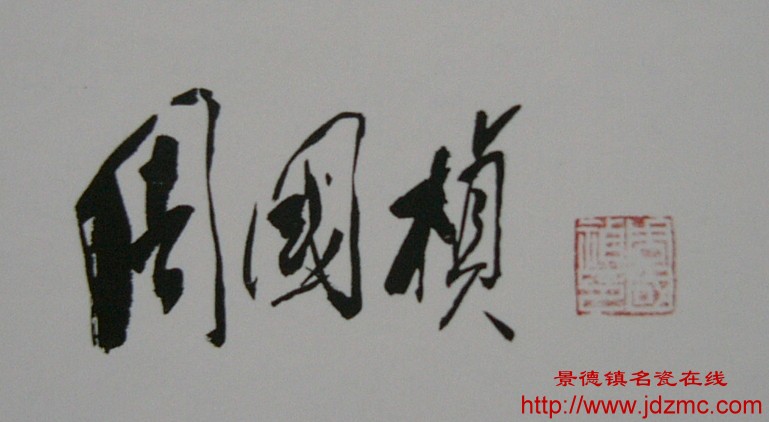 周國楨
景德镇名瓷在线
http://www.jdzmc.com